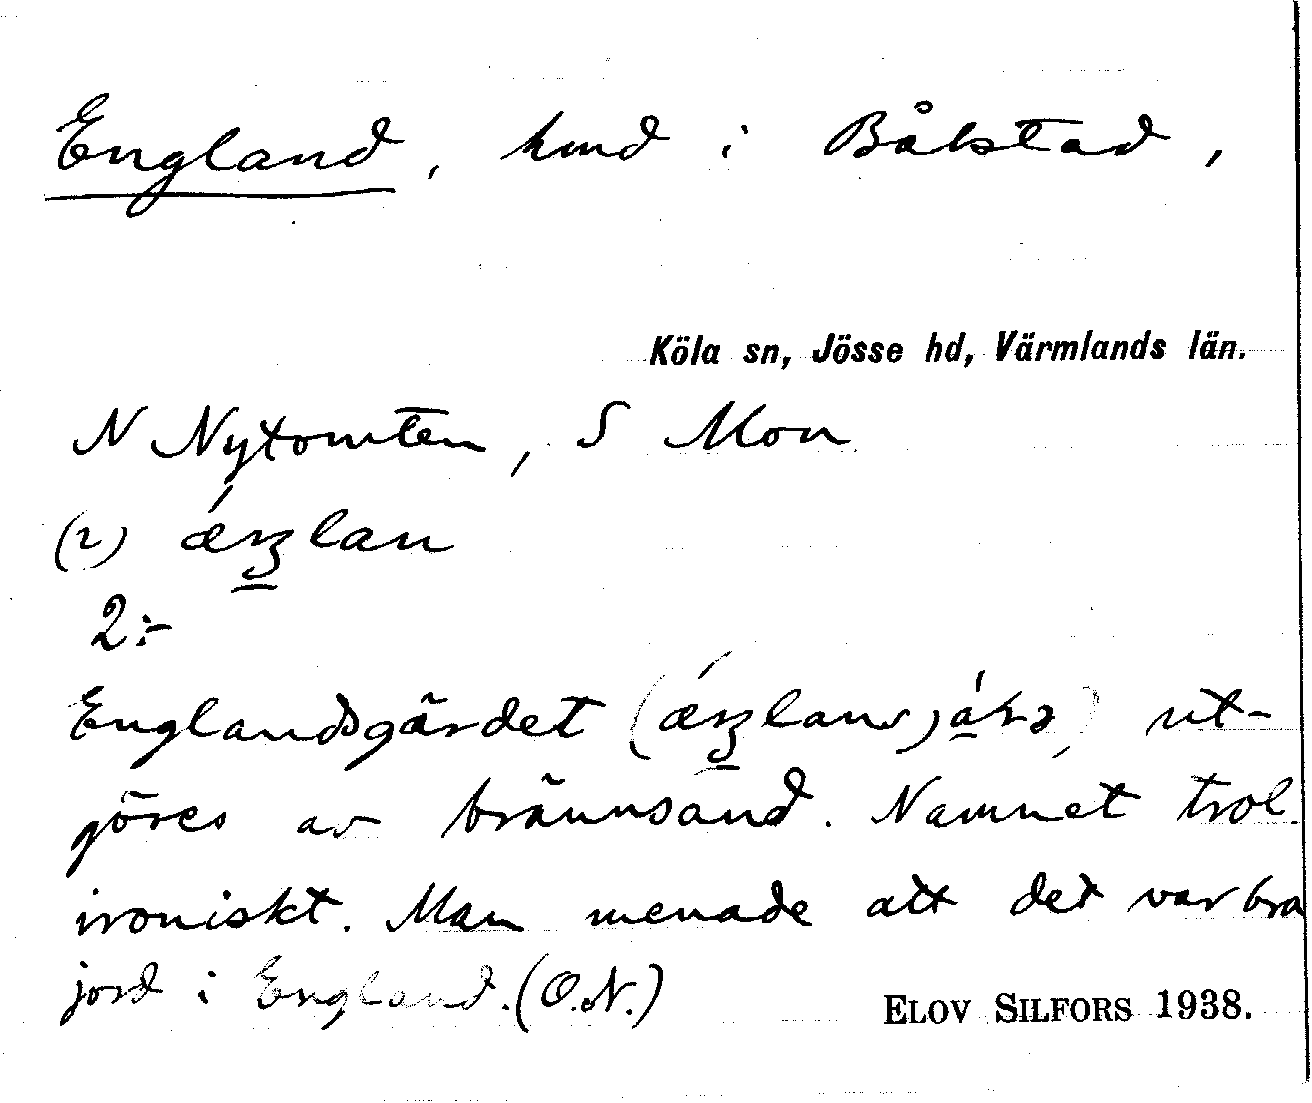 England, hmd i Bålstad,
Köla sn, Jösse hd, Värmlands län.
N Nytomten, S Mon
(2) ǽŋlan
2:-
Englandsgärdet ut-
göres av brännsand. Namnet trol.
ironiskt. Man menade att det var bra
jord i England. (O.N.)
ELOV SILFORS 1938.